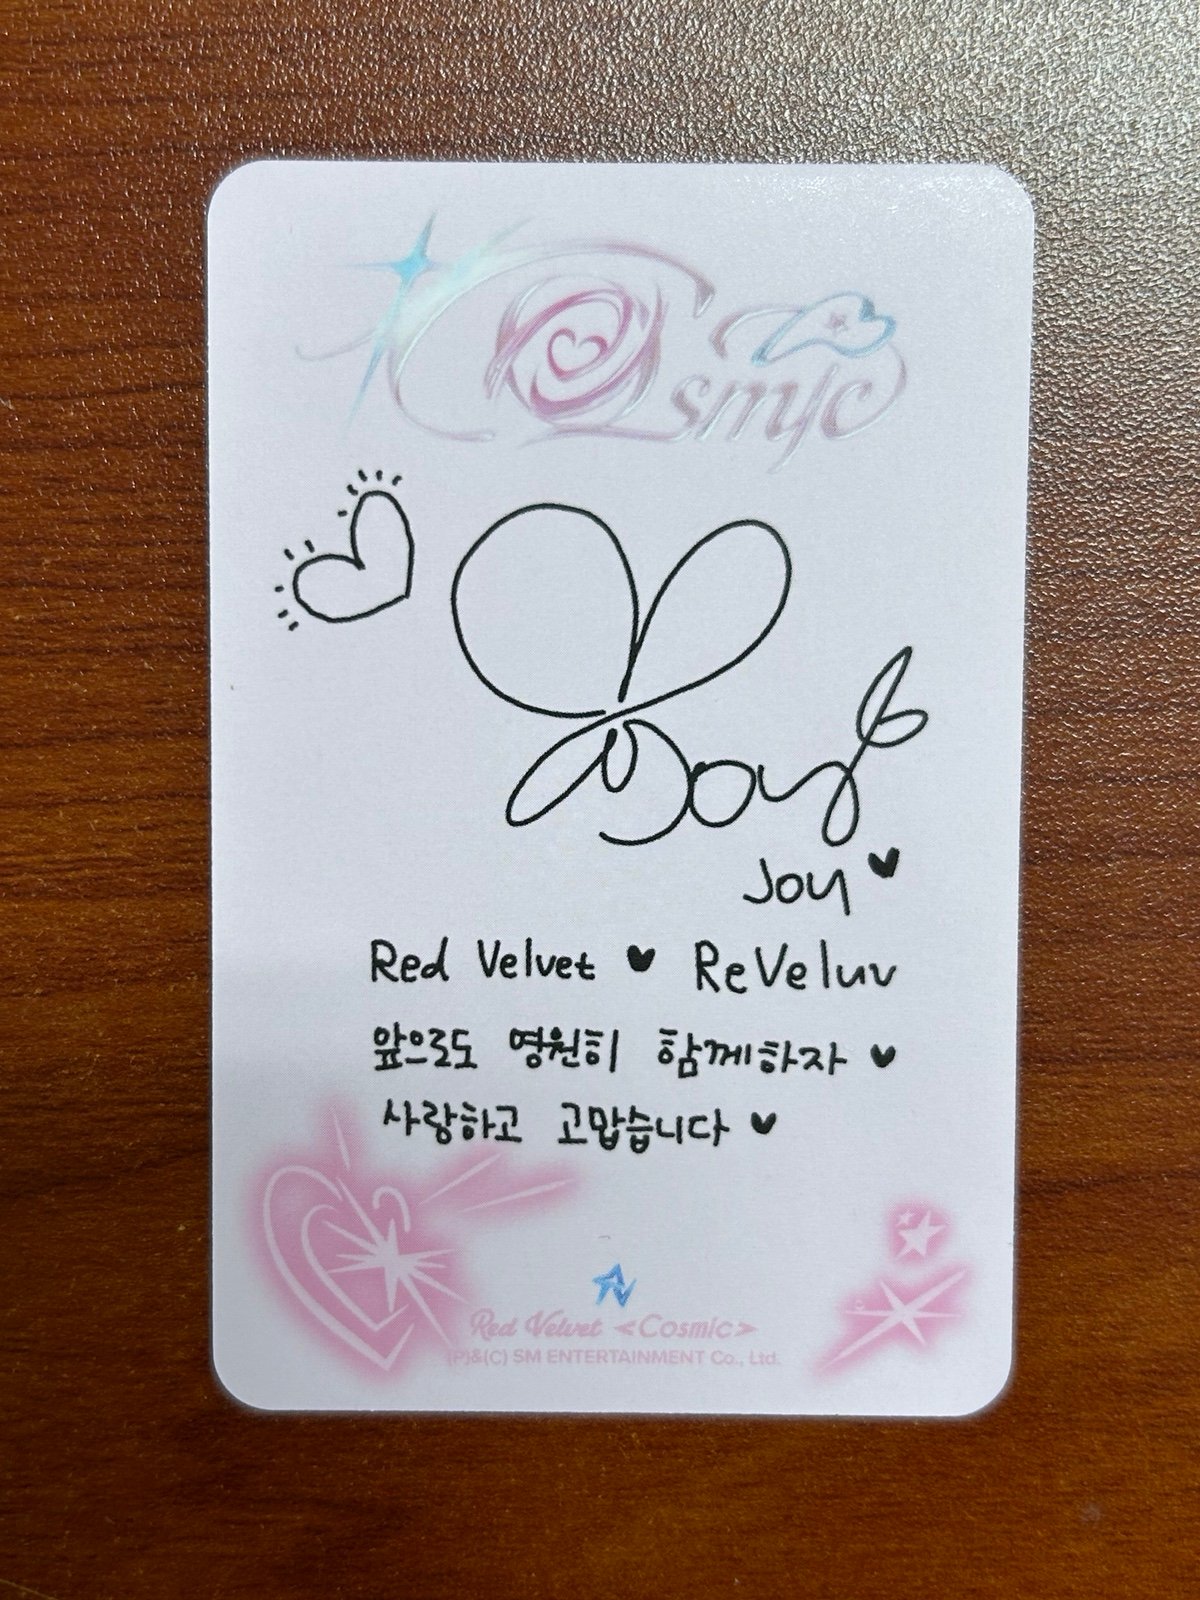 Cosmic
Joy
Joy
Red Velvet ♥ ReVeluv
앞으로도 영원히 함께하자 ♥
사랑하고 고맙습니다 ♥
Red Velvet <Cosmic>
(P)&(C) SM ENTERTAINMENT Co., Ltd.